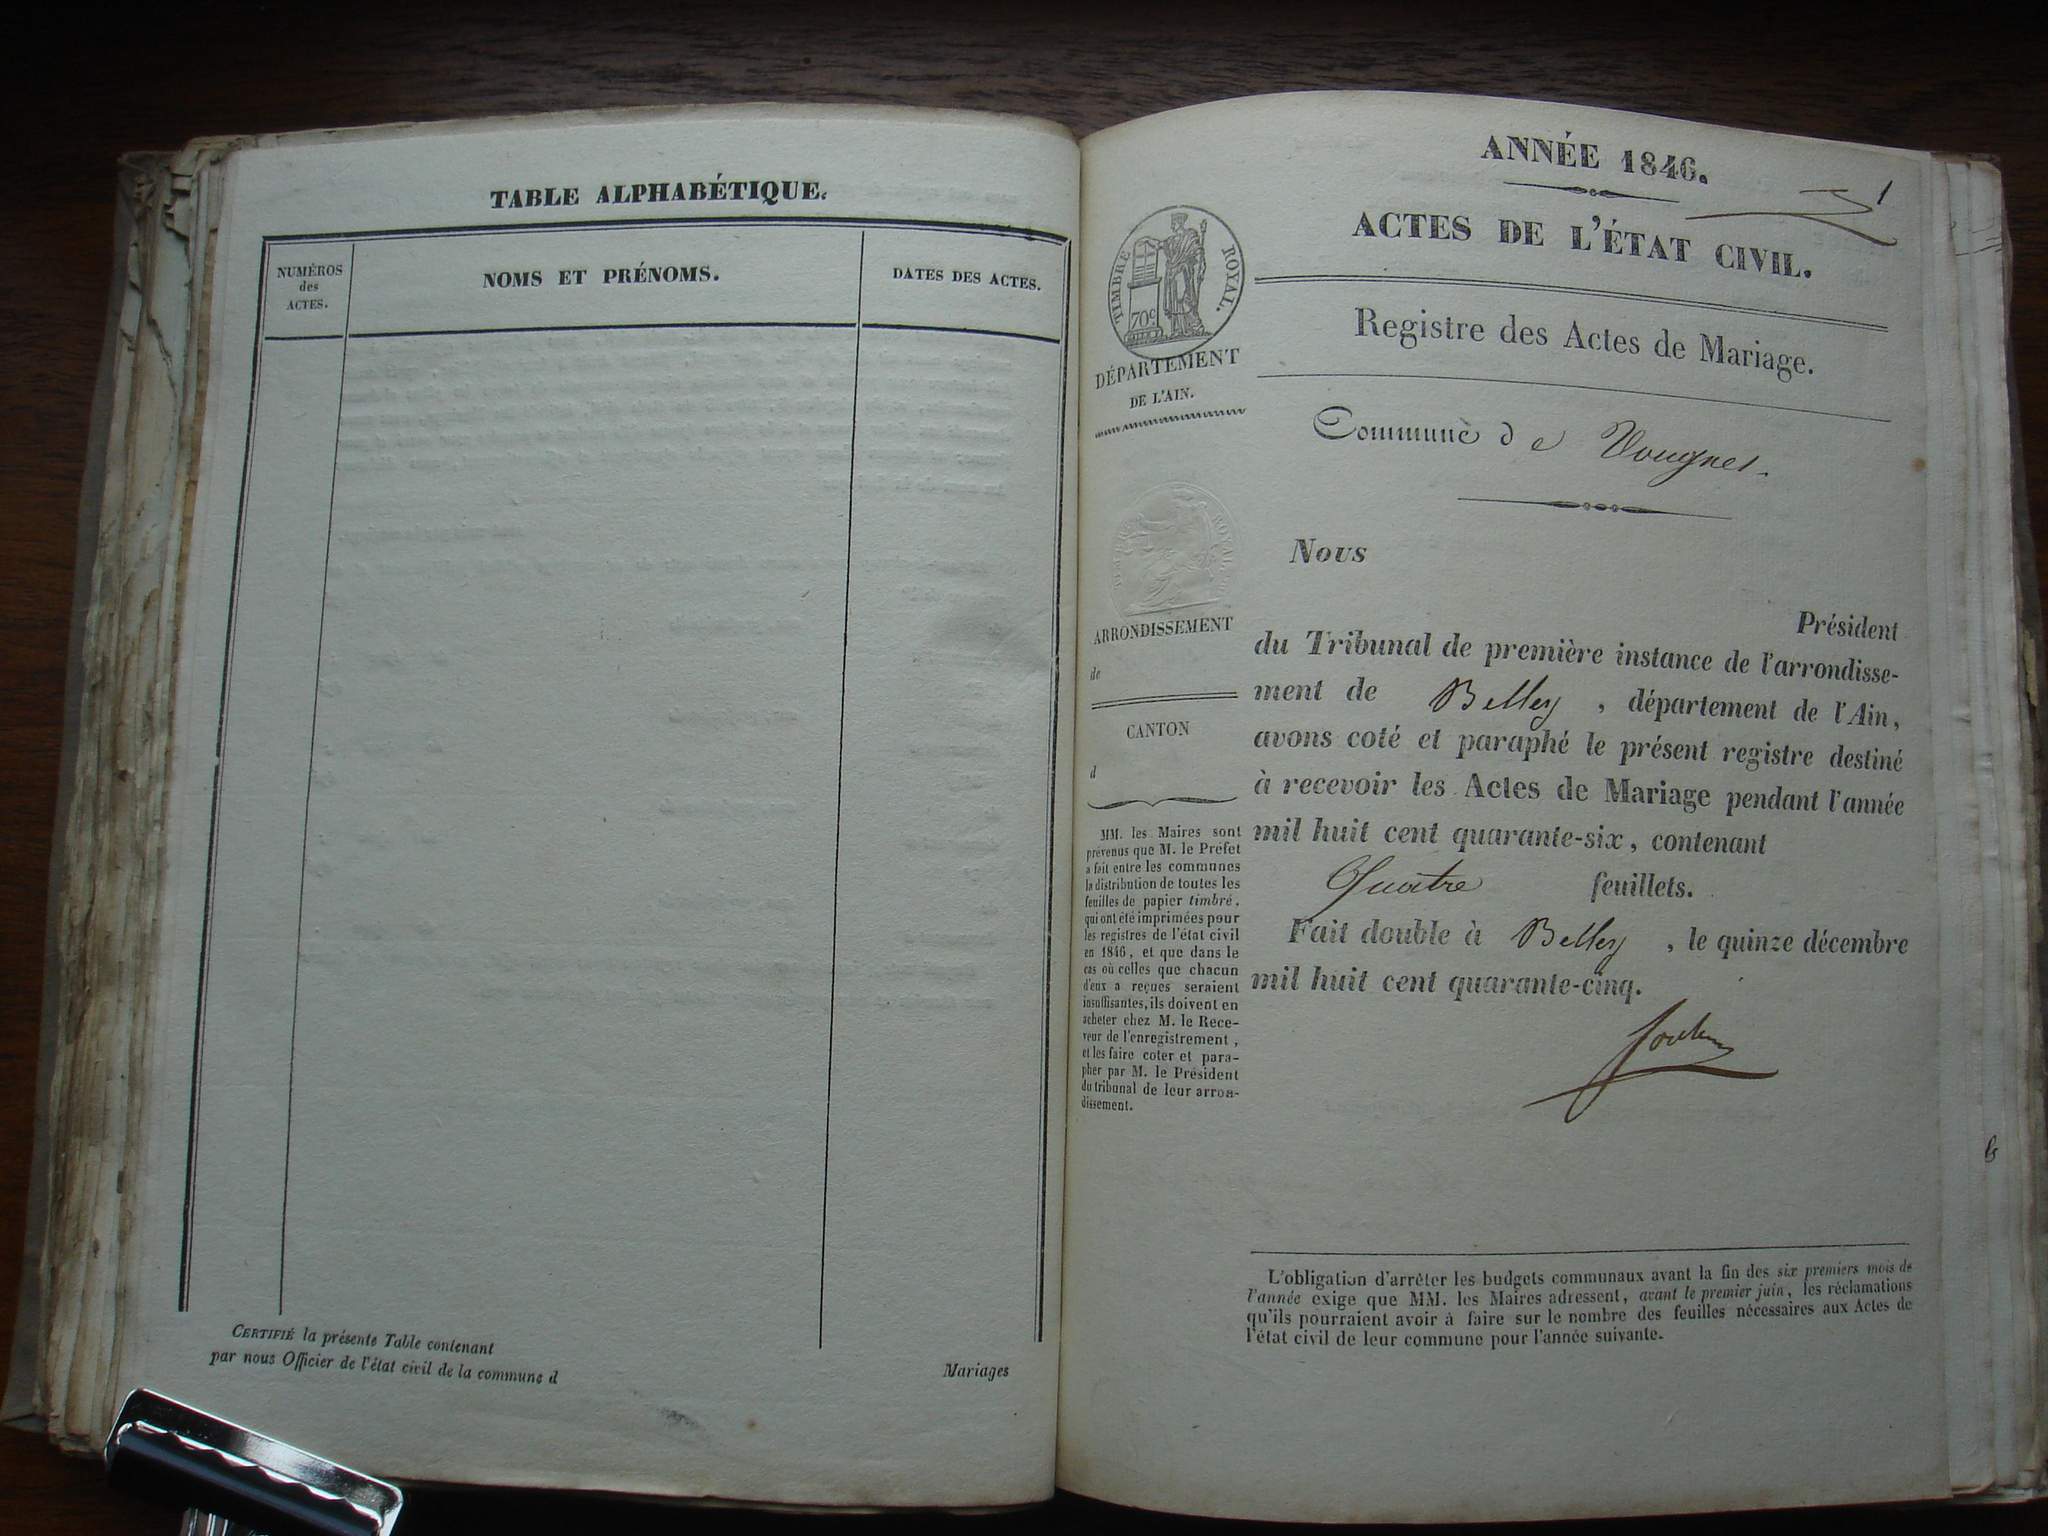 TABLE ALPHABÉTIQUE.
NUMÉROS
des
ACTES.
NOMS ET PRÉNOMS.
DATES DES ACTES.
CERTIFIÉ la présente Table contenant
Mariages
par nous Officier de l'état civil de la commune d
ANNÉE 1846.
1
ACTES DE L'ÉTAT CIVIL.
TIMBRE ROYAL.
70c
DÉPARTEMENT
DE L'AIN.
Registre des Actes de Mariage.
Commune de
ROYAL
ARRONDISSEMENT
de
CANTON
d
MM. les Maires sont
prévenus que M. le Préfet
a fait entre les communes
la distribution de toutes les
feuilles de papier timbré,
qui ont été imprimées pour
les registres de l'état civil
en 1846, et que dans le
cas où celles que chacun
d'eux a reçues seraient
insuffisantes, ils doivent en
acheter chez M. le Rece-
veur de l'enregistrement,
et les faire coter et para-
pher par M. le Président
du tribunal de leur arron-
dissement.
Nous
Président
du Tribunal de première instance de l'arrondisse-
ment de Belley, département de l'Ain,
avons coté et paraphé le présent registre destiné
à recevoir les Actes de Mariage pendant l'année
mil huit cent quarante-six, contenant
Quatre feuillets.
Fait double à Belley, le quinze décembre
mil huit cent quarante-cinq.
L'obligation d'arrêter les budgets communaux avant la fin des six premiers mois de
l'année exige que MM. les Maires adressent, avant le premier juin, les réclamations
qu'ils pourraient avoir à faire sur le nombre des feuilles nécessaires aux Actes de
l'état civil de leur commune pour l'année suivante.